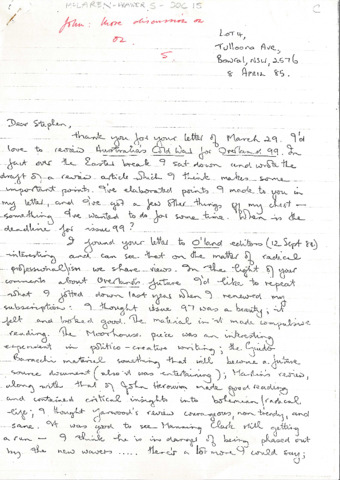 McLAREN - HANKS, - DOC 15
C
John: More discussion on
OZ
5
LOT 4,
Tulloona Ave,
Bowral, NSW, 2576
8 APRIL 85.
Dear Stephen,
Thank you for your letter of March 29. I'd
love to review Australia's Cold War for Overland 99. In
fact over the Easter break I sat down and wrote the
draft of a review article which I think makes some
important points. I've elaborated points I made to you in
my letter, and I've got a few other things off my chest —
something I've wanted to do for some time. When is the
deadline for issue 99?
I found your letter to O'land editors (12 Sept 84)
interesting and can see that on the matter of radical
professionalism we share views. In the light of your
comments about Overland's future I'd like to repeat
what I jotted down last year when I renewed my
subscription: I thought issue 97 was a beauty; it
felt and looked good. The material in it made compulsive
reading. The Moorhouse piece was an interesting
experiment in politico-creative writing; the Guido
Baracchi material something that will become a future
source document (also it was entertaining); Martin's review,
along with that of John Herouvim made good reading
and contained critical insights into bohemian/radical
life; I thought Yarwood's review courageous, non trendy, and
sane. It was good to see Manning Clark still getting
a run — I think he is in danger of being phased out
by the new wavers ..... there's a lot more I could say;